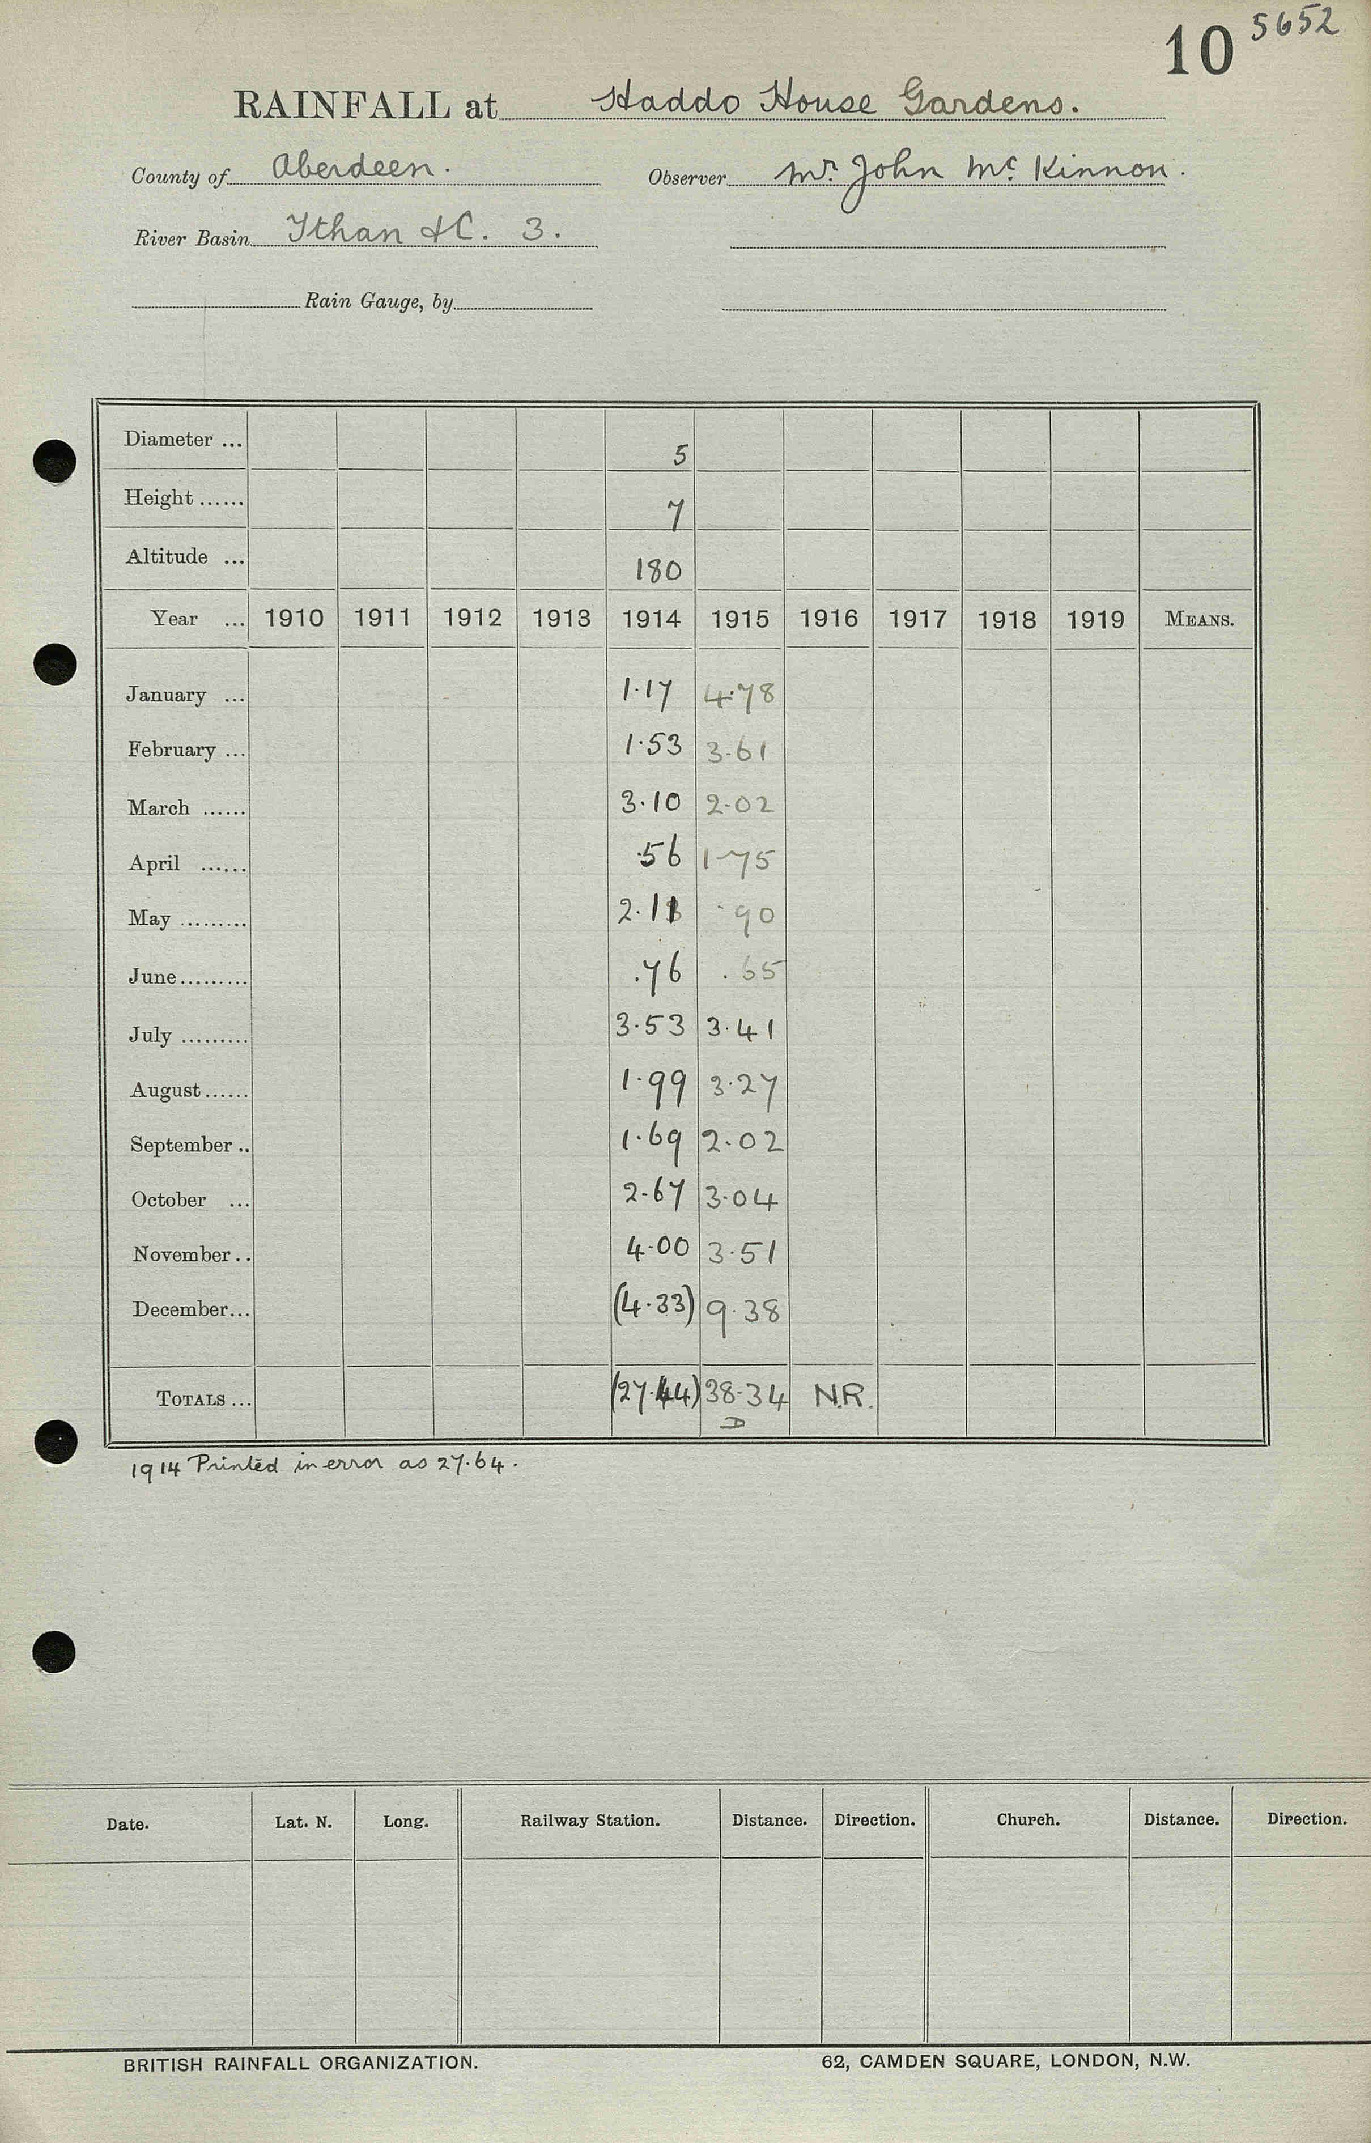 10 5652
RAINFALL at Haddo House Gardens.
County of Aberdeen. Observer Mr. John Mc Kinnon.
River Basin Ythan &C. 3.
Rain Gauge, by
Diameter ... 5
Height ...... 7
Altitude ... 180
Year ... 1910 1911 1912 1913 1914 1915 1916 1917 1918 1919 MEANS.
January ... 1.17 4.78
February ... 1.53 3.61
March ...... 3.10 2.02
April ...... .56 1.75
May ......... 2.11 .90
June......... .76 .65
July ......... 3.53 3.41
August...... 1.99 3.27
September .. 1.69 2.02
October ... 2.67 3.04
November.. 4.00 3.51
December... (4.33) 9.38
TOTALS ... (27.44) 38.34 N.R.
D
1914 Printed in error as 27.64.
Date. Lat. N. Long. Railway Station. Distance. Direction. Church. Distance. Direction.
BRITISH RAINFALL ORGANIZATION. 62, CAMDEN SQUARE, LONDON, N.W.